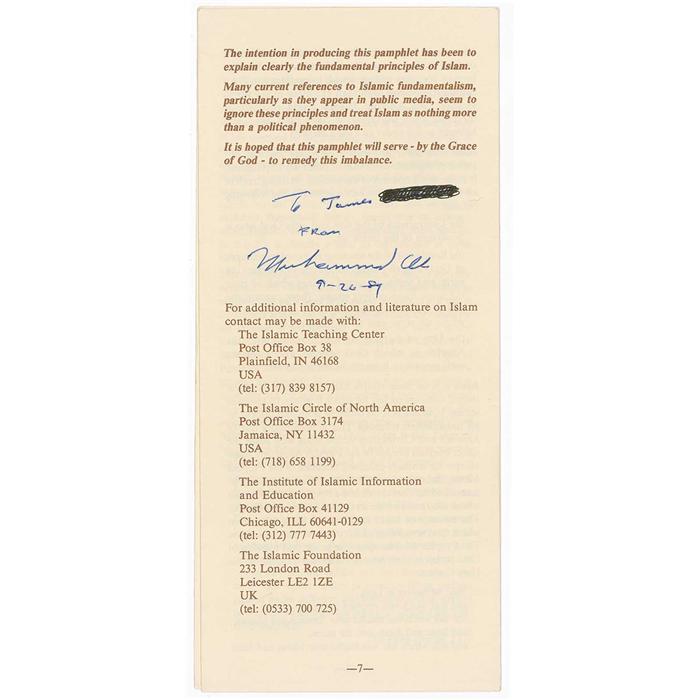 The intention in producing this pamphlet has been to
explain clearly the fundamental principles of Islam.
Many current references to Islamic fundamentalism,
particularly as they appear in public media, seem to
ignore these principles and treat Islam as nothing more
than a political phenomenon.
It is hoped that this pamphlet will serve - by the Grace
of God - to remedy this imbalance.
To James
From
Muhammad Ali
9-26-89
For additional information and literature on Islam
contact may be made with:
The Islamic Teaching Center
Post Office Box 38
Plainfield, IN 46168
USA
(tel: (317) 839 8157)
The Islamic Circle of North America
Post Office Box 3174
Jamaica, NY 11432
USA
(tel: (718) 658 1199)
The Institute of Islamic Information
and Education
Post Office Box 41129
Chicago, ILL 60641-0129
(tel: (312) 777 7443)
The Islamic Foundation
233 London Road
Leicester LE2 1ZE
UK
(tel: (0533) 700 725)
—7—